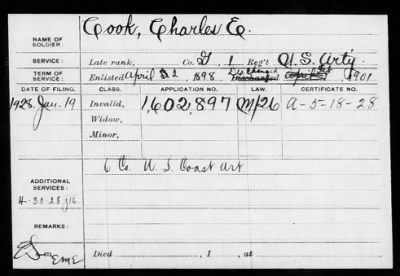 NAME OF SOLDIER: Cook, Charles E.
SERVICE: Late rank, Co. G, 1 Reg't U.S. Arty
TERM OF SERVICE: Enlisted April 22, 1898, Discharged April, 1901
DATE OF FILING. CLASS. APPLICATION NO. LAW. CERTIFICATE NO.
1928. Jan. 19 Invalid, 1,602,897 M/26 A-5-18-28
Widow,
Minor,
ADDITIONAL SERVICES: 6 Co. U.S. Coast Art.
4-30-28
REMARKS:
EME Died , 1 , at